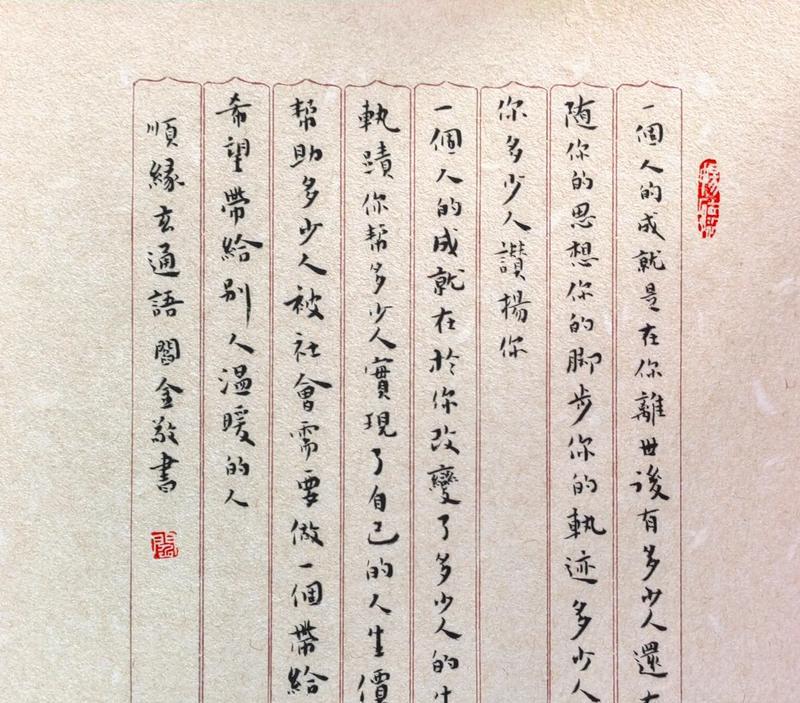 一個人的成就是在你離世後有多少人還
随你的思想你的脚步你的執迹多少人
你多少人讚揚你
一個人的成就在於你改變了多少人的
執蹟你帮多少人實現了自己的人生價
帮助多少人被社會需要做一個帶給
希望帶給别人温暖的人
順緣玄通語 閻金敬書
閻